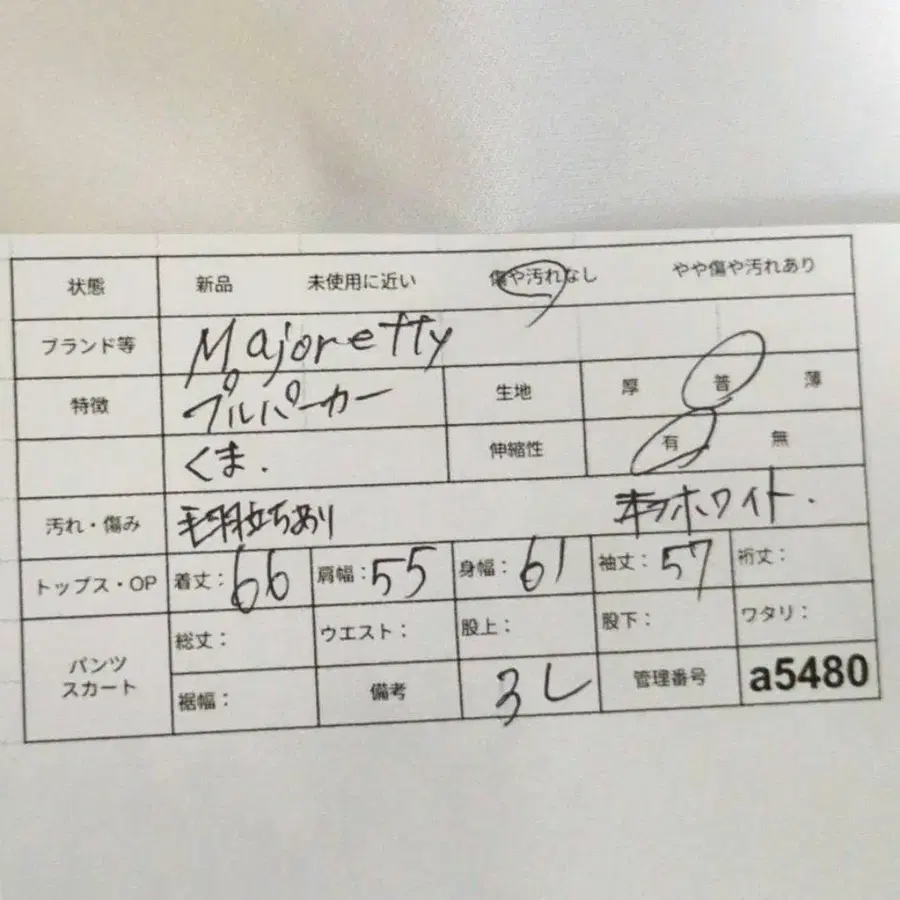 状態 新品 未使用に近い 傷や汚れなし やや傷や汚れあり
ブランド等 Majoretty
特徴 プルパーカー 生地 厚 普 薄
くま. 伸縮性 有 無
汚れ・傷み 毛羽立ちあり ホワイト.
トップス・OP 着丈: 66 肩幅: 55 身幅: 61 袖丈: 57 裄丈:
パンツ スカート 総丈: ウエスト: 股上: 股下: ワタリ:
裾幅: 備考 3L 管理番号 a5480